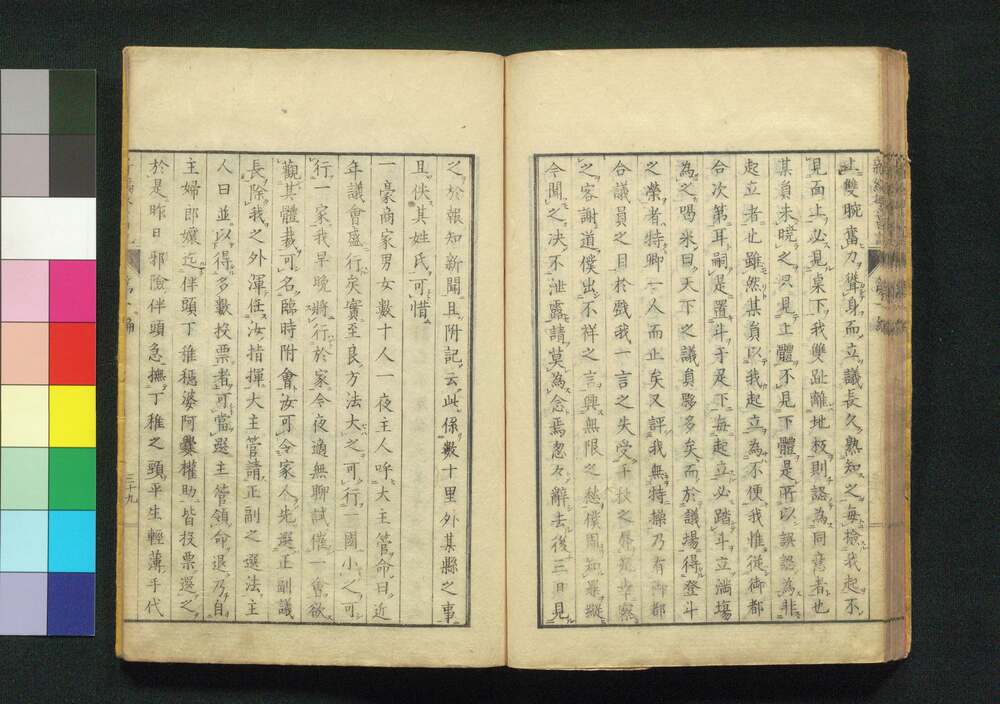 止雙腕奮力聳身而立議長久熟知之每撿我起不
見面上必見桌下我雙趾離地极則認為同意者也
某員未曉之只見上體不見下體是所以誤認為非
起立者也雖然某員以我起立為不便我惟從御都
合次第耳嗣是置斗于是下每起立必踏斗立滿場
為之喝米曰天下之議員夥多矣而於議場得登斗
之榮者特卿一人而止矣又評我無特操乃有御都
合議員之目於戲我一言之失受千秋之辱
之客謝道僕出不祥之言興無限之愁僕固知罪縱
令聞之決不泄露請莫為念焉忽々辭去後三日見
之於報知新聞且附記云此係數十里外某縣之事
且佚其姓氏可惜
一豪商家男女數十人一夜主人呼大主管命曰近
年議會盛行矣實至良方法大之可行一國小之可
行一家我早晚將行於家今夜適無聊試催一會欲
觀其體裁可名臨時附會汝可令家人先選正副議
長除我之外渾任汝指揮大主管請正副之選法主
人曰並以得多數投票者可當選主管領命退乃自
主婦郎孃迄伴頭丁稚穩婆阿爨權助皆投票選之
於是昨日邪險伴頭急撫丁稚之頭平生輕薄手代
三十九